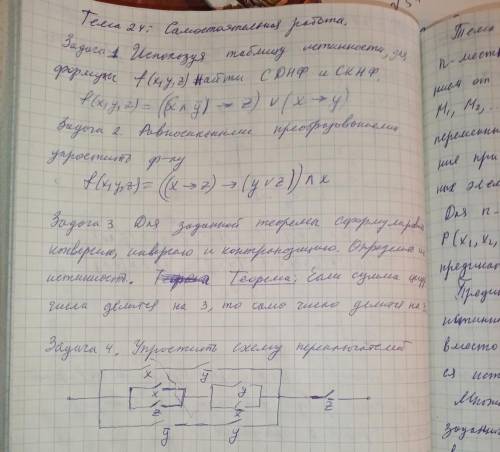 Тема 24: Самостоятельная работа.
Задача 1. Используя таблицу истинности, для
формулы f(x,y,z) найти СДНФ и СКНФ.
f(x,y,z) = ((x̄ ∧ ȳ) → z) ∨ (x → y)
Задача 2. Равносильными преобразованиями
упростить ф-лу
f(x,y,z) = ((x → z) → (y ∨ z)) ∧ x
Задача 3 Для заданной теоремы сформулировать
инверсию, и контрапозицию. Определить
истинность. Теорема: Если сумма цифр
числа делится на 3, то само число делится на 3
Задача 4. Упростить схему переключателей
x ȳ
x y
z x̄ z̄
ȳ y
Тема
n-мест
нием от
M₁, M₂
переменны
ние при
ных элем
Для n
P(x₁, x₂,
предикат
Преди
истинн
вместо
ся ист
Множе
задани